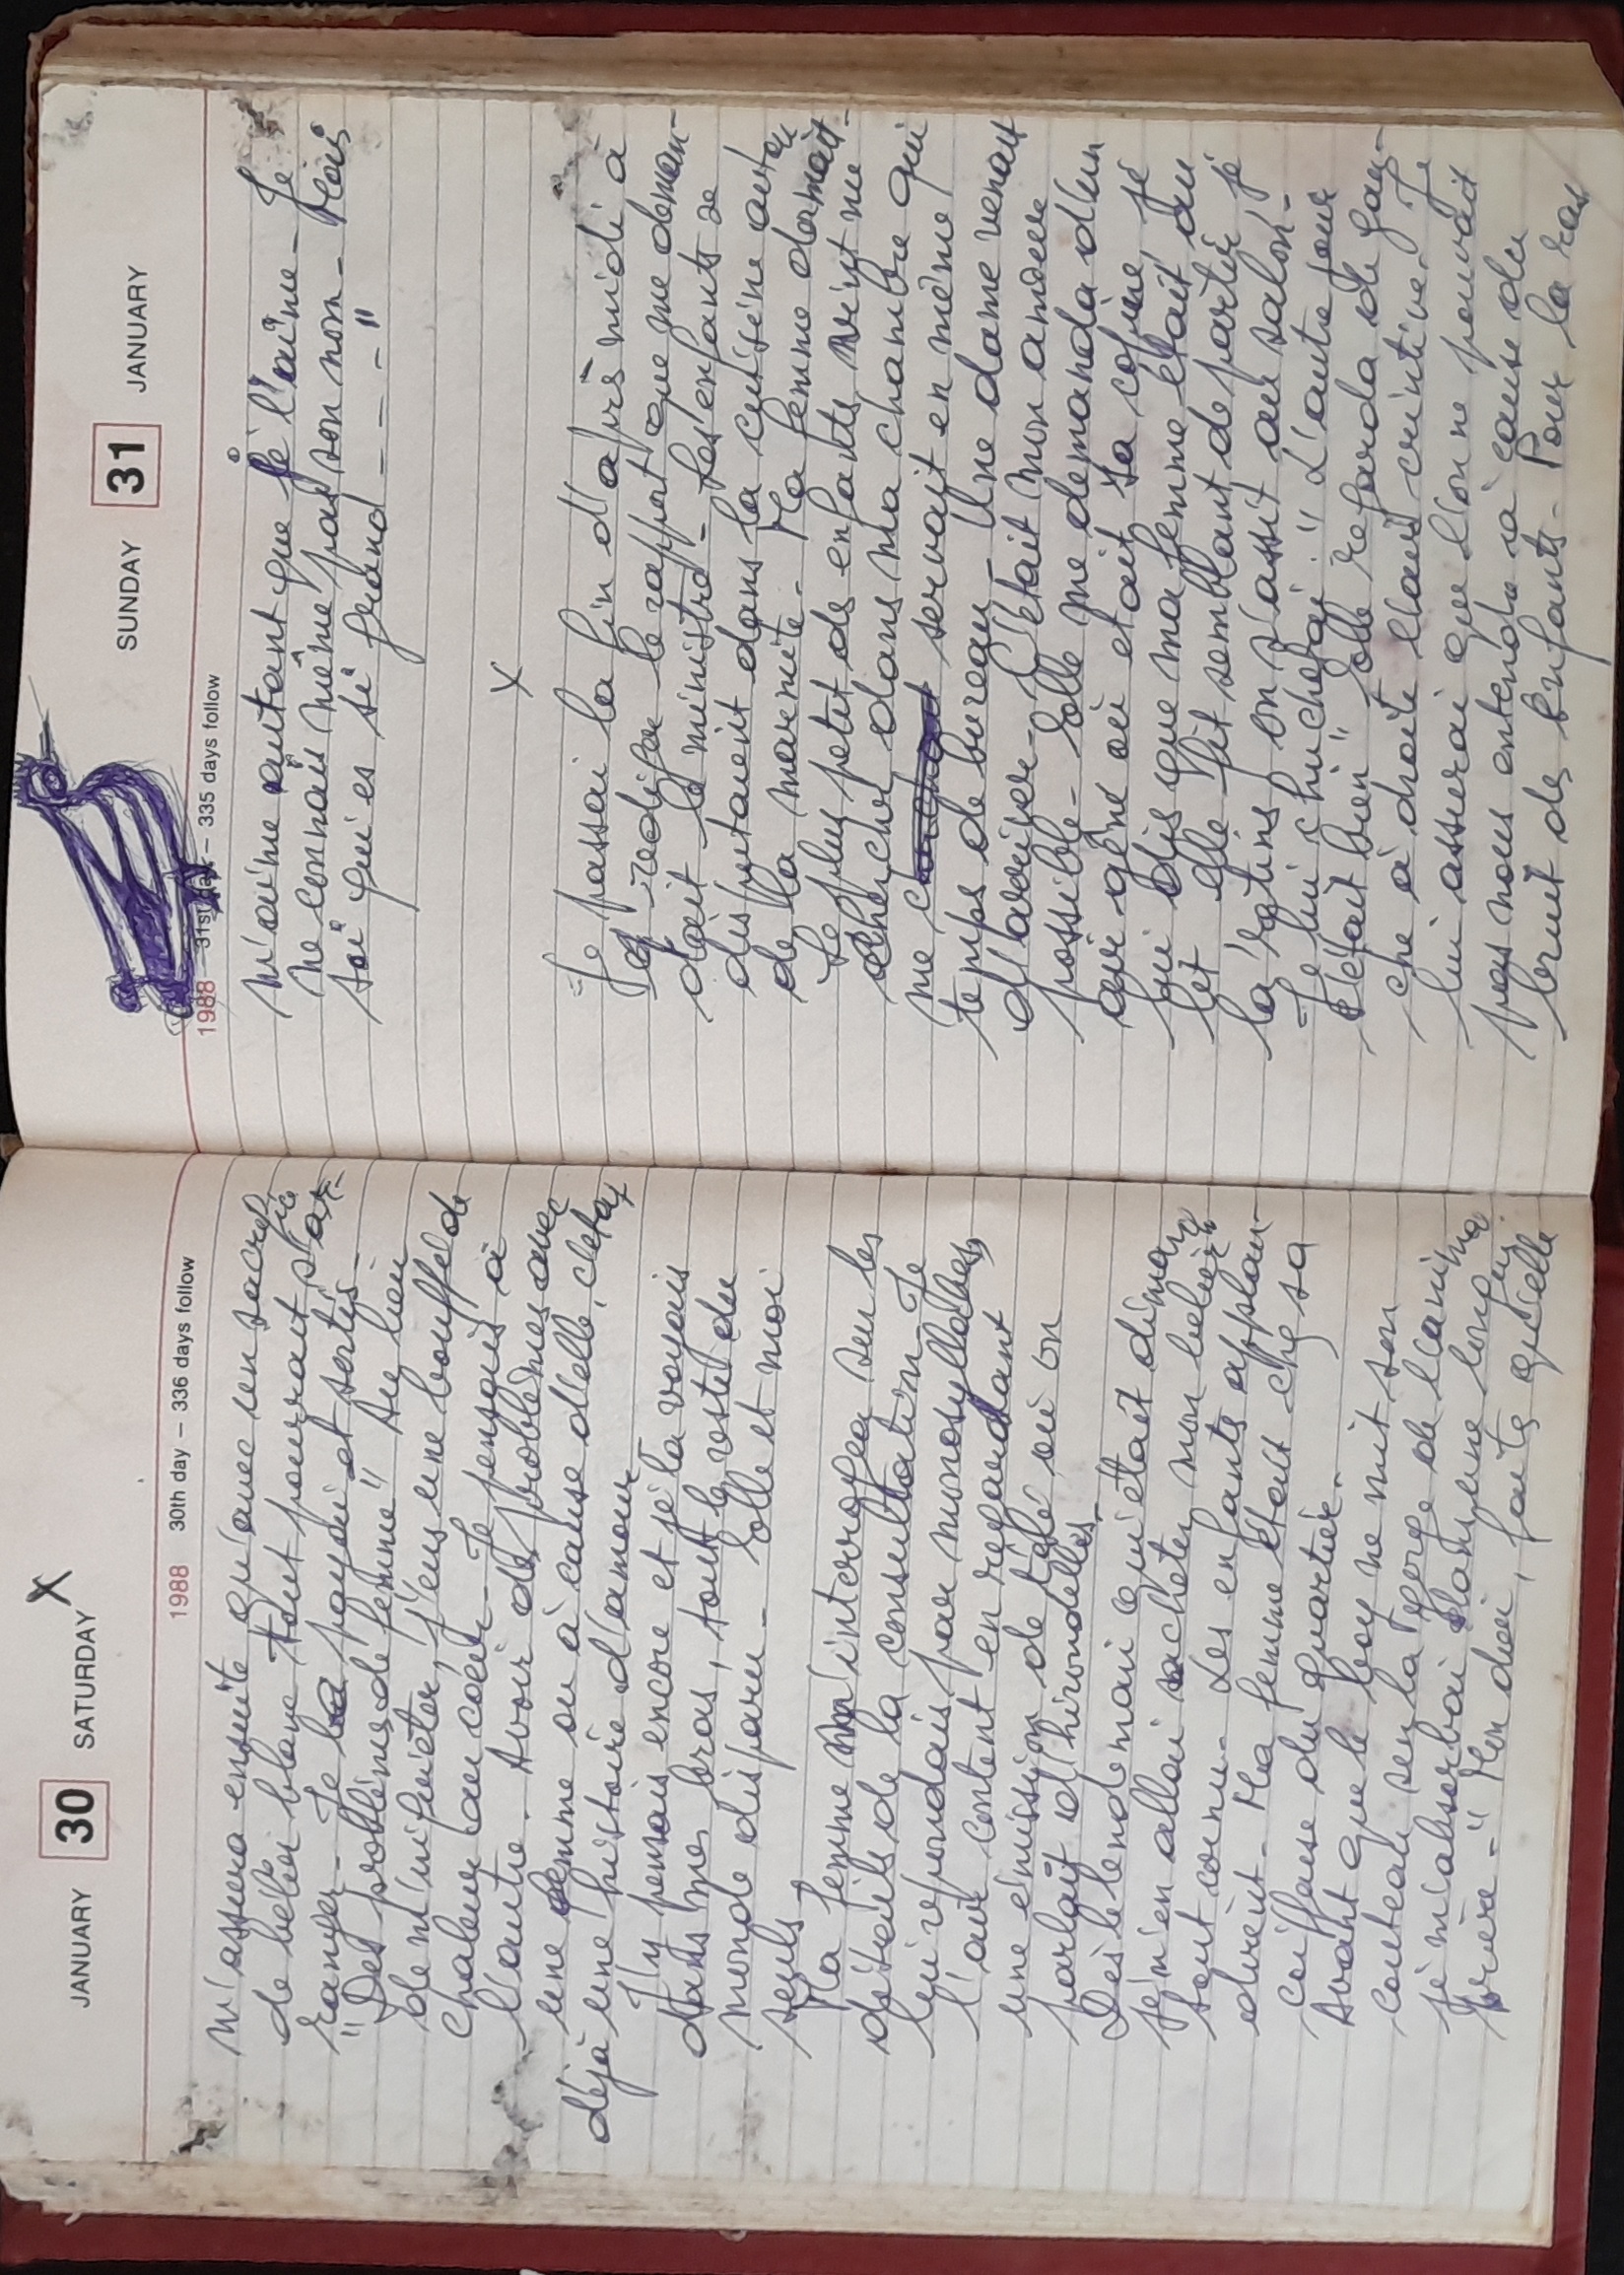 JANUARY 30 SATURDAY X
1988 30th day – 336 days follow
m'assura ensuite qu'avec un sacrifice
de bélier blanc tout pourrait s'ar-
ranger - Je payai et sortis -
"Des problèmes de femme" Au lieu
de m'inquiéter, j'eus une bouffée de
chaleur au coeur - Je pensais à
l'autre. Avoir des problèmes avec
une femme ou à cause d'elle, c'etait
déjà une histoire d'amour
J'y pensais encore et je la voyais
dans mes bras, tout le reste du
monde disparu - Elle et moi
seuls -
Ma femme m'interrogea sur les
détails de la consultation - Je
lui repondais par monosyllabes,
l'air content en regardant
une émission de télé où on
parlait d'hirondelles -
Dès le lendemain qui était diman
je m'en allai acheter mon bélier
tout cornu - Les enfants applau-
dirent - Ma femme était chez sa
coiffeuse du quartier.
Avant que le boy ne mit son
couteau sur la gorge de l'animal
je m'absorbai dans une longue
prière - "Mon dieu, faites qu'elle
SUNDAY 31 JANUARY
1988 31st day – 335 days follow
m'aime autant que je l'aime - Je
ne connais même pas son nom - Mais
toi qui es si grand - - - - "
X
Je passai la fin d'après midi à
rediger le rapport que me deman-
dait le ministre - Les enfants se
disputaient dans la cuisine autour
de la marmite - Ma femme dormait -
Le plus petit des enfants vint me
chercher dans ma chambre qui
me servait en même
temps de bureau - Une dame venait
d'arriver - C'était mon amoureuse
possible - Elle me demanda d'un
air gêné où etait sa copine, je
lui dis que ma femme était au
lit elle fit semblant de partir je
la retins on s'assit au salon -
- Je lui chuchotai : " L'autre jour
c'était bien" Elle regarda de gau-
che à droite l'air craintive - Je
lui assurai que l'on ne pouvait
pas nous entendre à cause du
bruit des enfants - Pour la ras